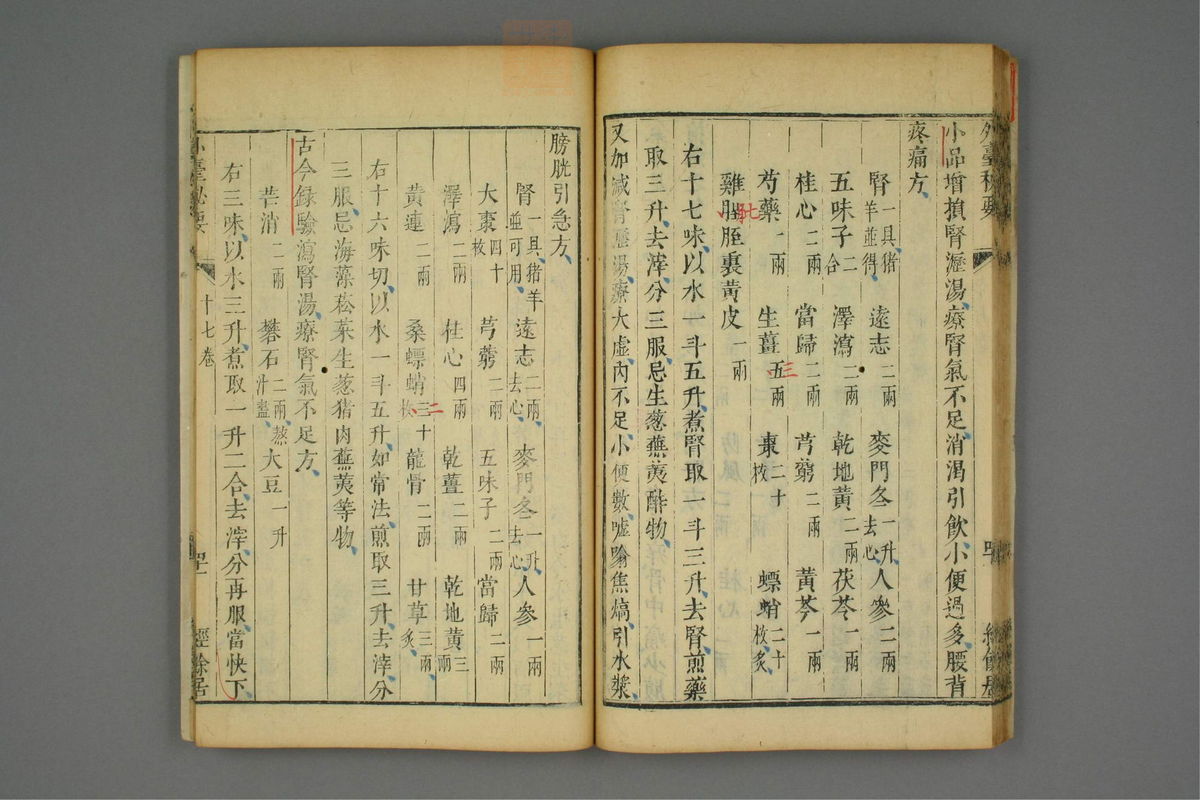 外臺秘要
小品增損腎瀝湯療腎氣不足消渴引飲小便過多腰背
疼痛方
腎一具猪羊並得 遠志二兩 麥門冬一升去心 人參二兩
五味子二合 澤瀉二兩 乾地黃二兩 茯苓一兩
桂心二兩 當歸二兩 芎藭二兩 黃芩一兩
芍藥一兩 生薑五兩 三 棗二十枚 螵蛸二十枚炙
雞膍胵裏黃皮一兩 七
右十七味以水一斗五升煮腎取一斗三升去腎煎藥
取三升去滓分三服忌生葱蕪荑酢物
又加減腎瀝湯療大虛內不足小便數噓噏焦熇引水漿
膀胱引急方
腎一具猪羊並可用 遠志二兩去心 麥門冬一升去心 人參一兩
大棗四十枚 芎藭二兩 五味子二兩 當歸二兩
澤瀉二兩 桂心四兩 乾薑二兩 乾地黃三兩
黃連二兩 桑螵蛸三十枚 二 龍骨二兩 甘草三兩炙
右十六味切以水一斗五升如常法煎取三升去滓分
三服忌海藻菘菜生葱猪肉蕪荑等物
古今録驗瀉腎湯療腎氣不足方
芒消二兩 礬石二兩蒸汁盡 大豆一升
右三味以水三升煮取一升二合去滓分再服當快下
外臺秘要 十七卷 經餘居